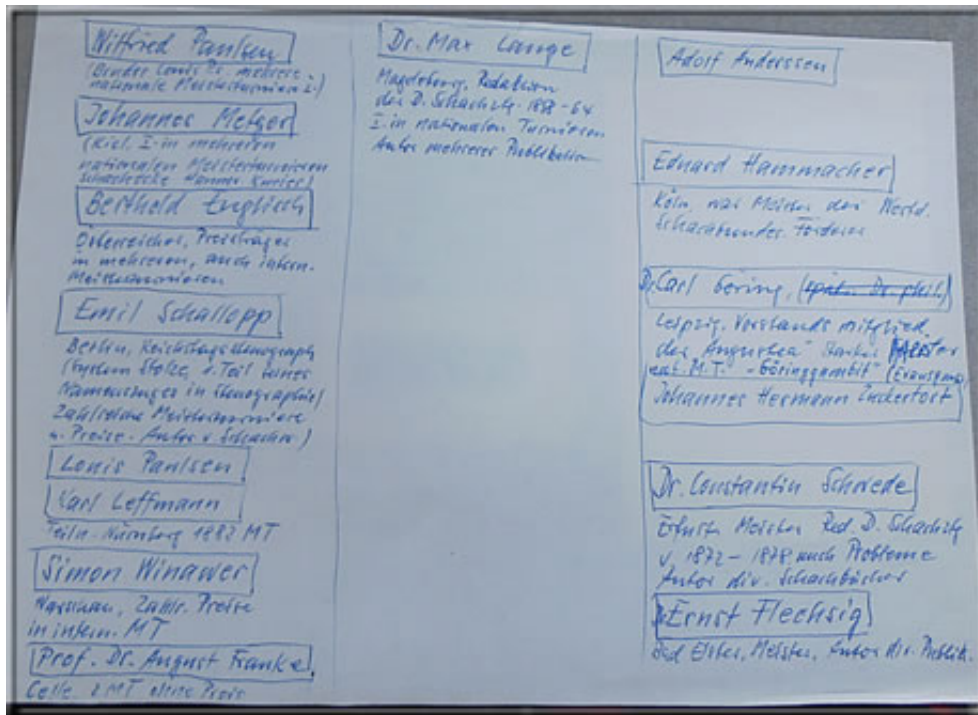 Wilfried Paulsen
(Bruder Louis P. mehrere
nationale Meisterturniere
Johannes Metger
(Kiel. I. in mehreren
nationalen Meisterturnieren
Berthold Englisch
Österreicher, Preisträger
in mehreren, auch intern.
Meisterturnieren
Emil Schallopp
Berlin, Reichstagsstenograph
(System Stolze, Teil seines
Namenszuges in Stenographie)
Zahlreiche Meisterturniere
u. Preise - Autor v. Schachw.)
Louis Paulsen
Karl Leffmann
Teiln. Nürnberg 1882 MT
Simon Winawer
Warschau, Zahlr. Preise
in intern. MT
Prof. Dr. August Franke,
Celle. 2 MT ohne Preis
Dr. Max Lange
Magdeburg, Redaktion
der D. Schachztg. 1858-64
I. in nationalen Turnieren
Autor mehrerer Publikation
Adolf Anderssen
Eduard Hammacher
Köln war Meister des Westd.
Schachbundes. Förderer
Dr. Carl Göring, (später Dr. phil.)
Leipzig. Vorstandsmitglied
der "Augustea" starker
M.T. - "Göringgambit"
Johannes Hermann Zuckertort
Dr. Constantin Schwede
Meister Red. D. Schachztg
v. 1872 - 1878, auch Probleme
Autor div. Schachbücher
Dr. Ernst Flechsig
Meister, Autor div. Publik.